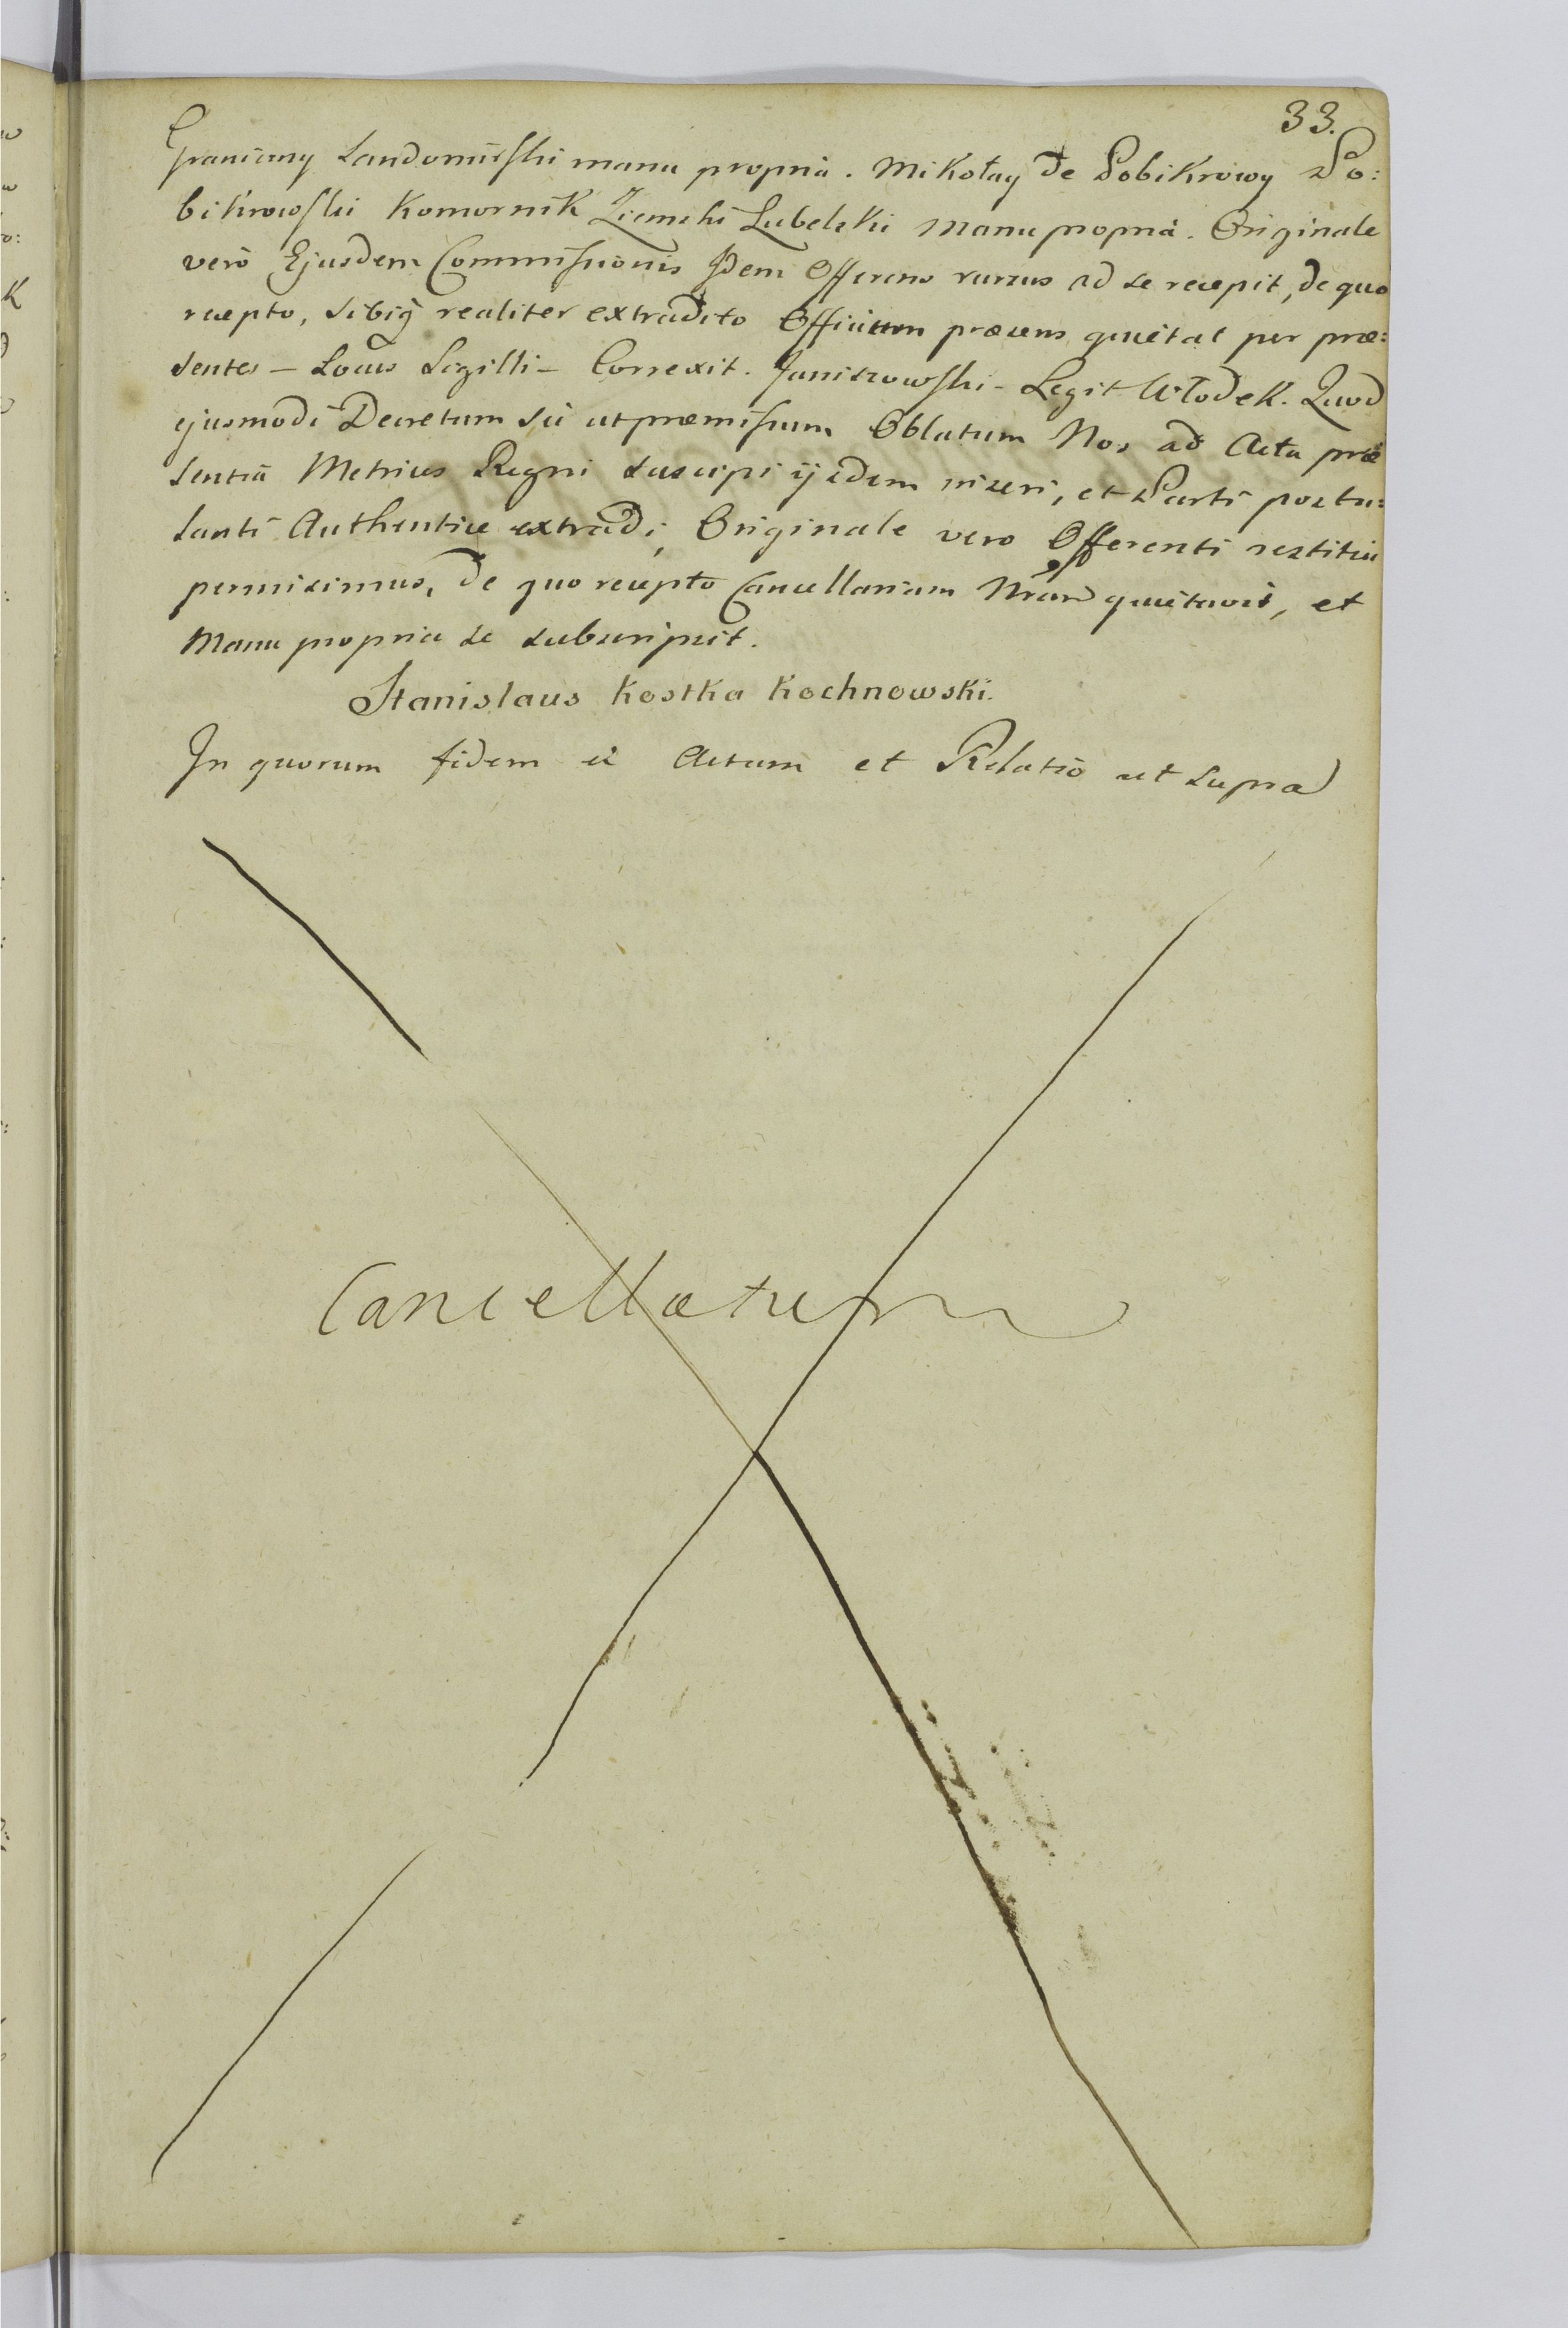 33.
Graniczny Sandomirski manu propriâ. Mikołay de Pobikrowy Po:
bikrowski Komornik Ziemski Lubelski manu propriâ. Originale
verò Ejusdem Commissionis Idem Offerens rursus ad se recepit, de quo
recepto, sibiq3 realiter extradito Officium præsens quietat per præ:
sentes – Locus Sigilli – Correxit. Janiszowski – Legit Włodek. Quod
ejusmodi Decretum sic ut præmissum Oblatum Nos ad Acta præ
sentia Metrices Regni suscipi ijsdem inseri, et Parti postu:
lanti Authentice extradi, Originale vero Offerenti restitui
permisimus, de quo recepto Cancellariam Nram quietavit, et
Manu propria se subscripsit.
Stanislaus Kostka Kochnowski.
In quorum fidem &c Actum et Relatio ut supra
Cancellatum